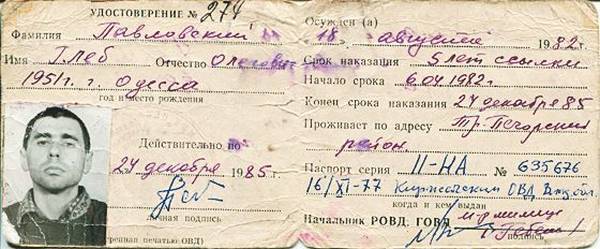 УДОСТОВЕРЕНИЕ № 274
Фамилия Павловский
Имя Глеб Отчество Олегович
1951 г. г. Одесса
год и место рождения
Действительно по
24 декабря 1985 г.
подпись
тренная печатью ОВД)
Осужден (а)
18 августа 1982 г.
Срок наказания 5 лет ссылки
Начало срока 6.04.1982 г.
Конец срока наказания 24 декабря 85
Проживает по адресу Тр. Печорский
район
Паспорт серия II-НА № 635676
16/XI-77 Киржачским ОВД
когда и кем выдан
Начальник РОВД, ГОВД м-р милиции
подпись